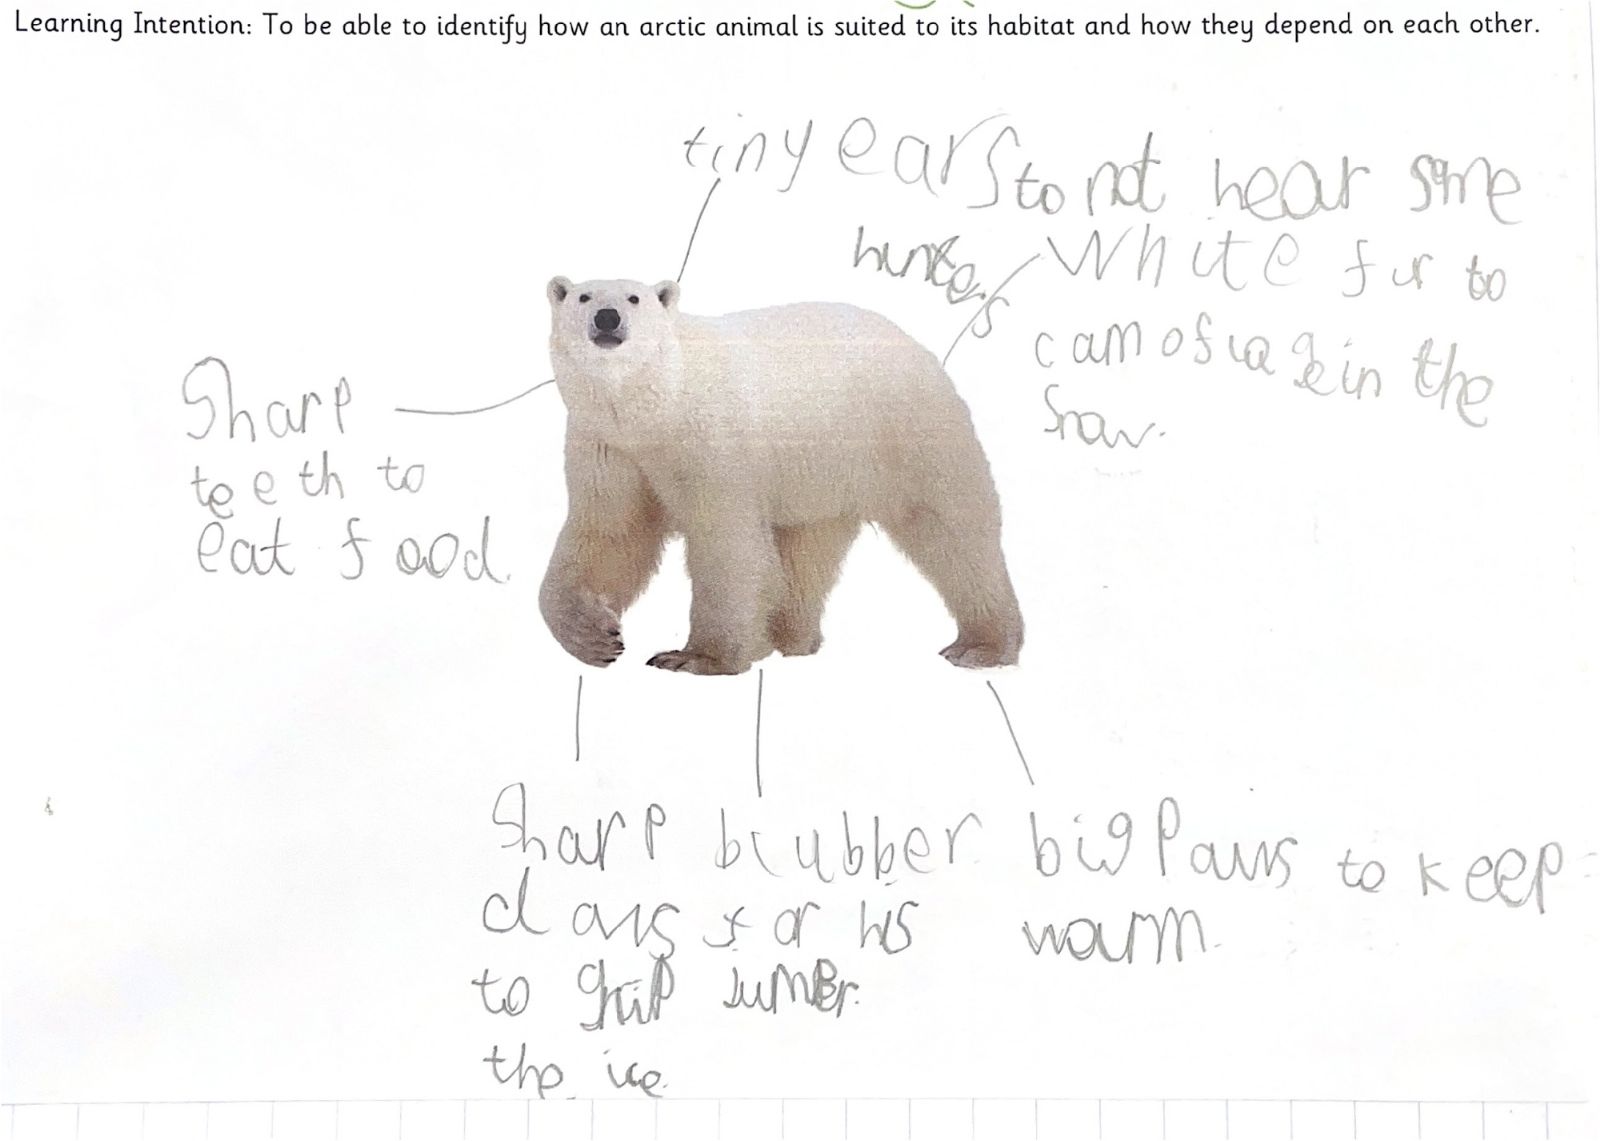 Learning Intention: To be able to identify how an arctic animal is suited to its habitat and how they depend on each other.
tiny ears to not hear some
hunters
White fur to
camofiage in the
Snow.
Sharp
teeth to
eat food.
Sharp
claws
to grip
the ice.
blubber
for his
big Paws to keep
warm.